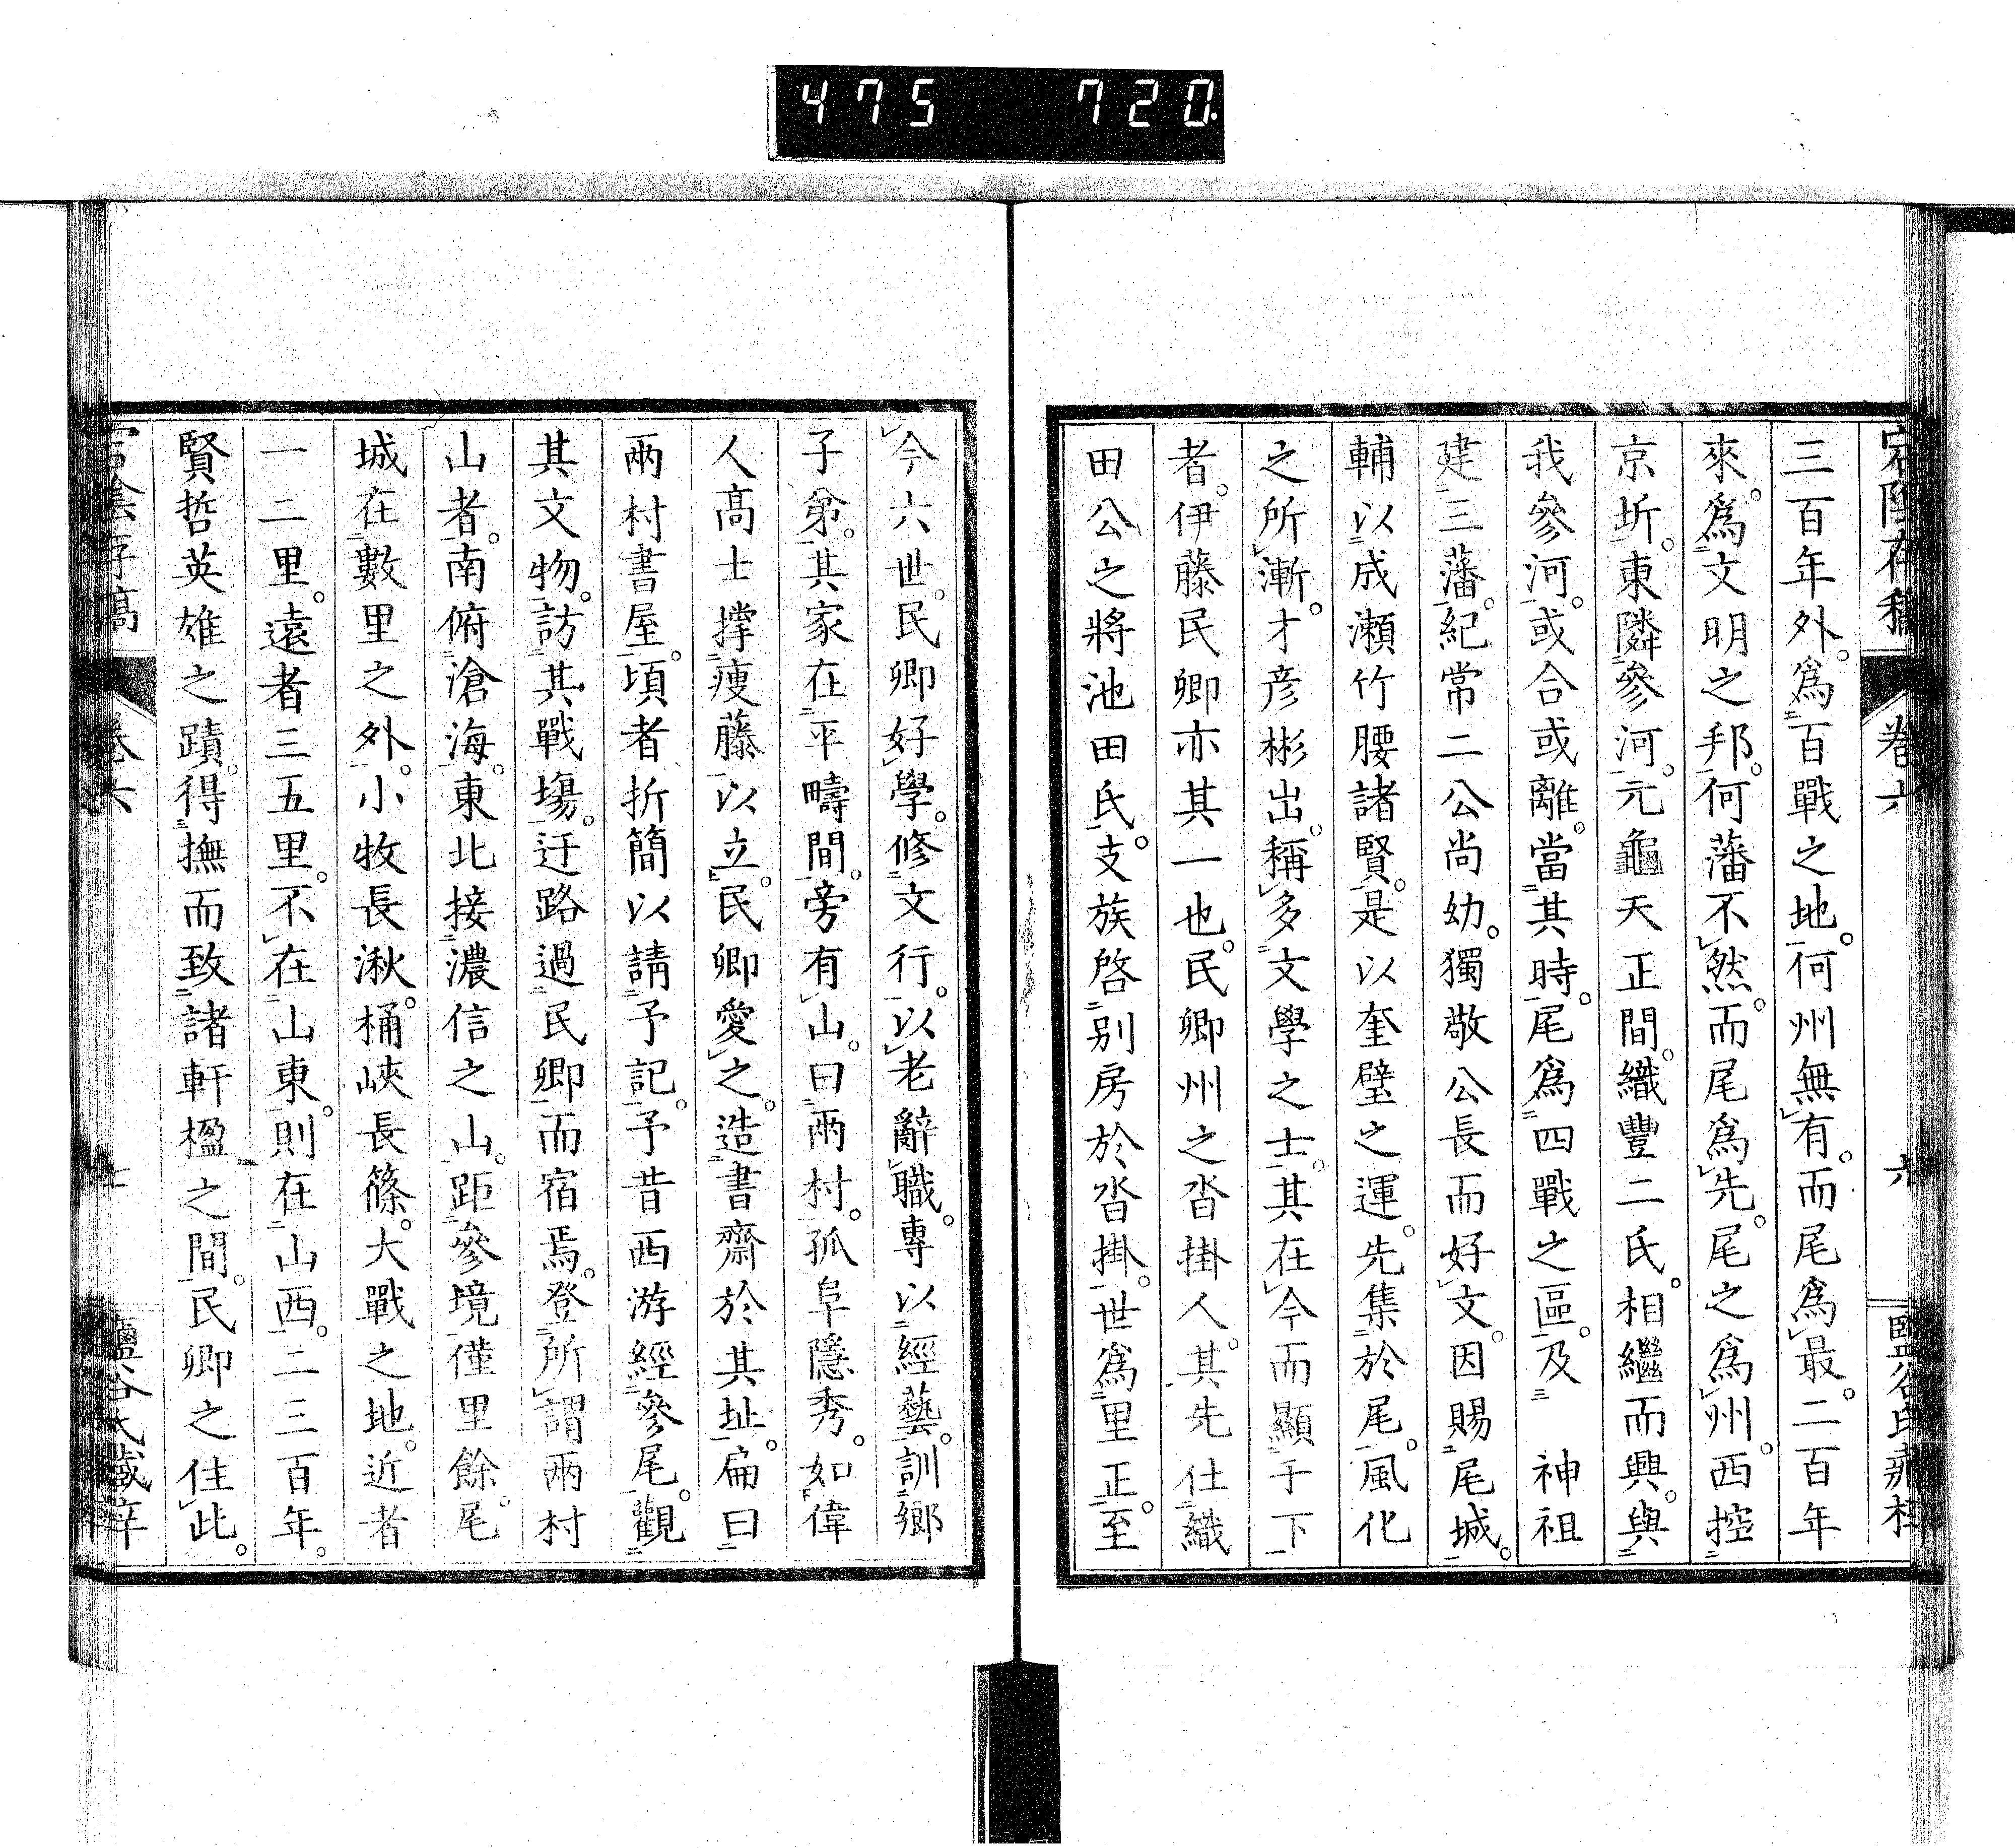 475 720
宕陰存稿 卷六 六
三百年外。爲百戰之地。何州無有。而尾爲最。二百年
來。爲文明之邦。何藩不然。而尾爲先。尾之爲州。西控
京圻。東隣參河。元龜天正間。織豐二氏。相繼而興。與
我參河。或合或離。當其時。尾爲四戰之區。及 神祖
建三藩。紀常二公尚幼。獨敬公長而好文。因賜尾城。
輔以成瀨竹腰諸賢。是以奎璧之運。先集於尾。風化
之所漸。才彦彬出。稱多文學之士。其在今而顯于下
者。伊藤民卿亦其一也。民卿州之沓掛人。其先仕織
田公之將池田氏。支族啓别房於沓掛。世爲里正。至
今六世。民卿好學。修文行。以老辭職。專以經藝。訓鄉
子弟。其家在平疇間。旁有山。曰兩村。孤阜隱秀。如偉
人高士撑瘦藤以立。民卿愛之。造書齋於其址。扁曰
兩村書屋。頃者折簡以請予記。予昔西游經參尾。觀
其文物。訪其戰塲。迂路過民卿而宿焉。登所謂兩村
山者。南俯滄海。東北接濃信之山。距參境僅里餘。尾
城在數里之外。小牧長湫。桶峽長篠。大戰之地。近者
一二里。遠者三五里。不在山東。則在山西。二三百年。
賢哲英雄之蹟。得撫而致諸軒楹之間。民卿之住此。
宕陰存稿 卷六